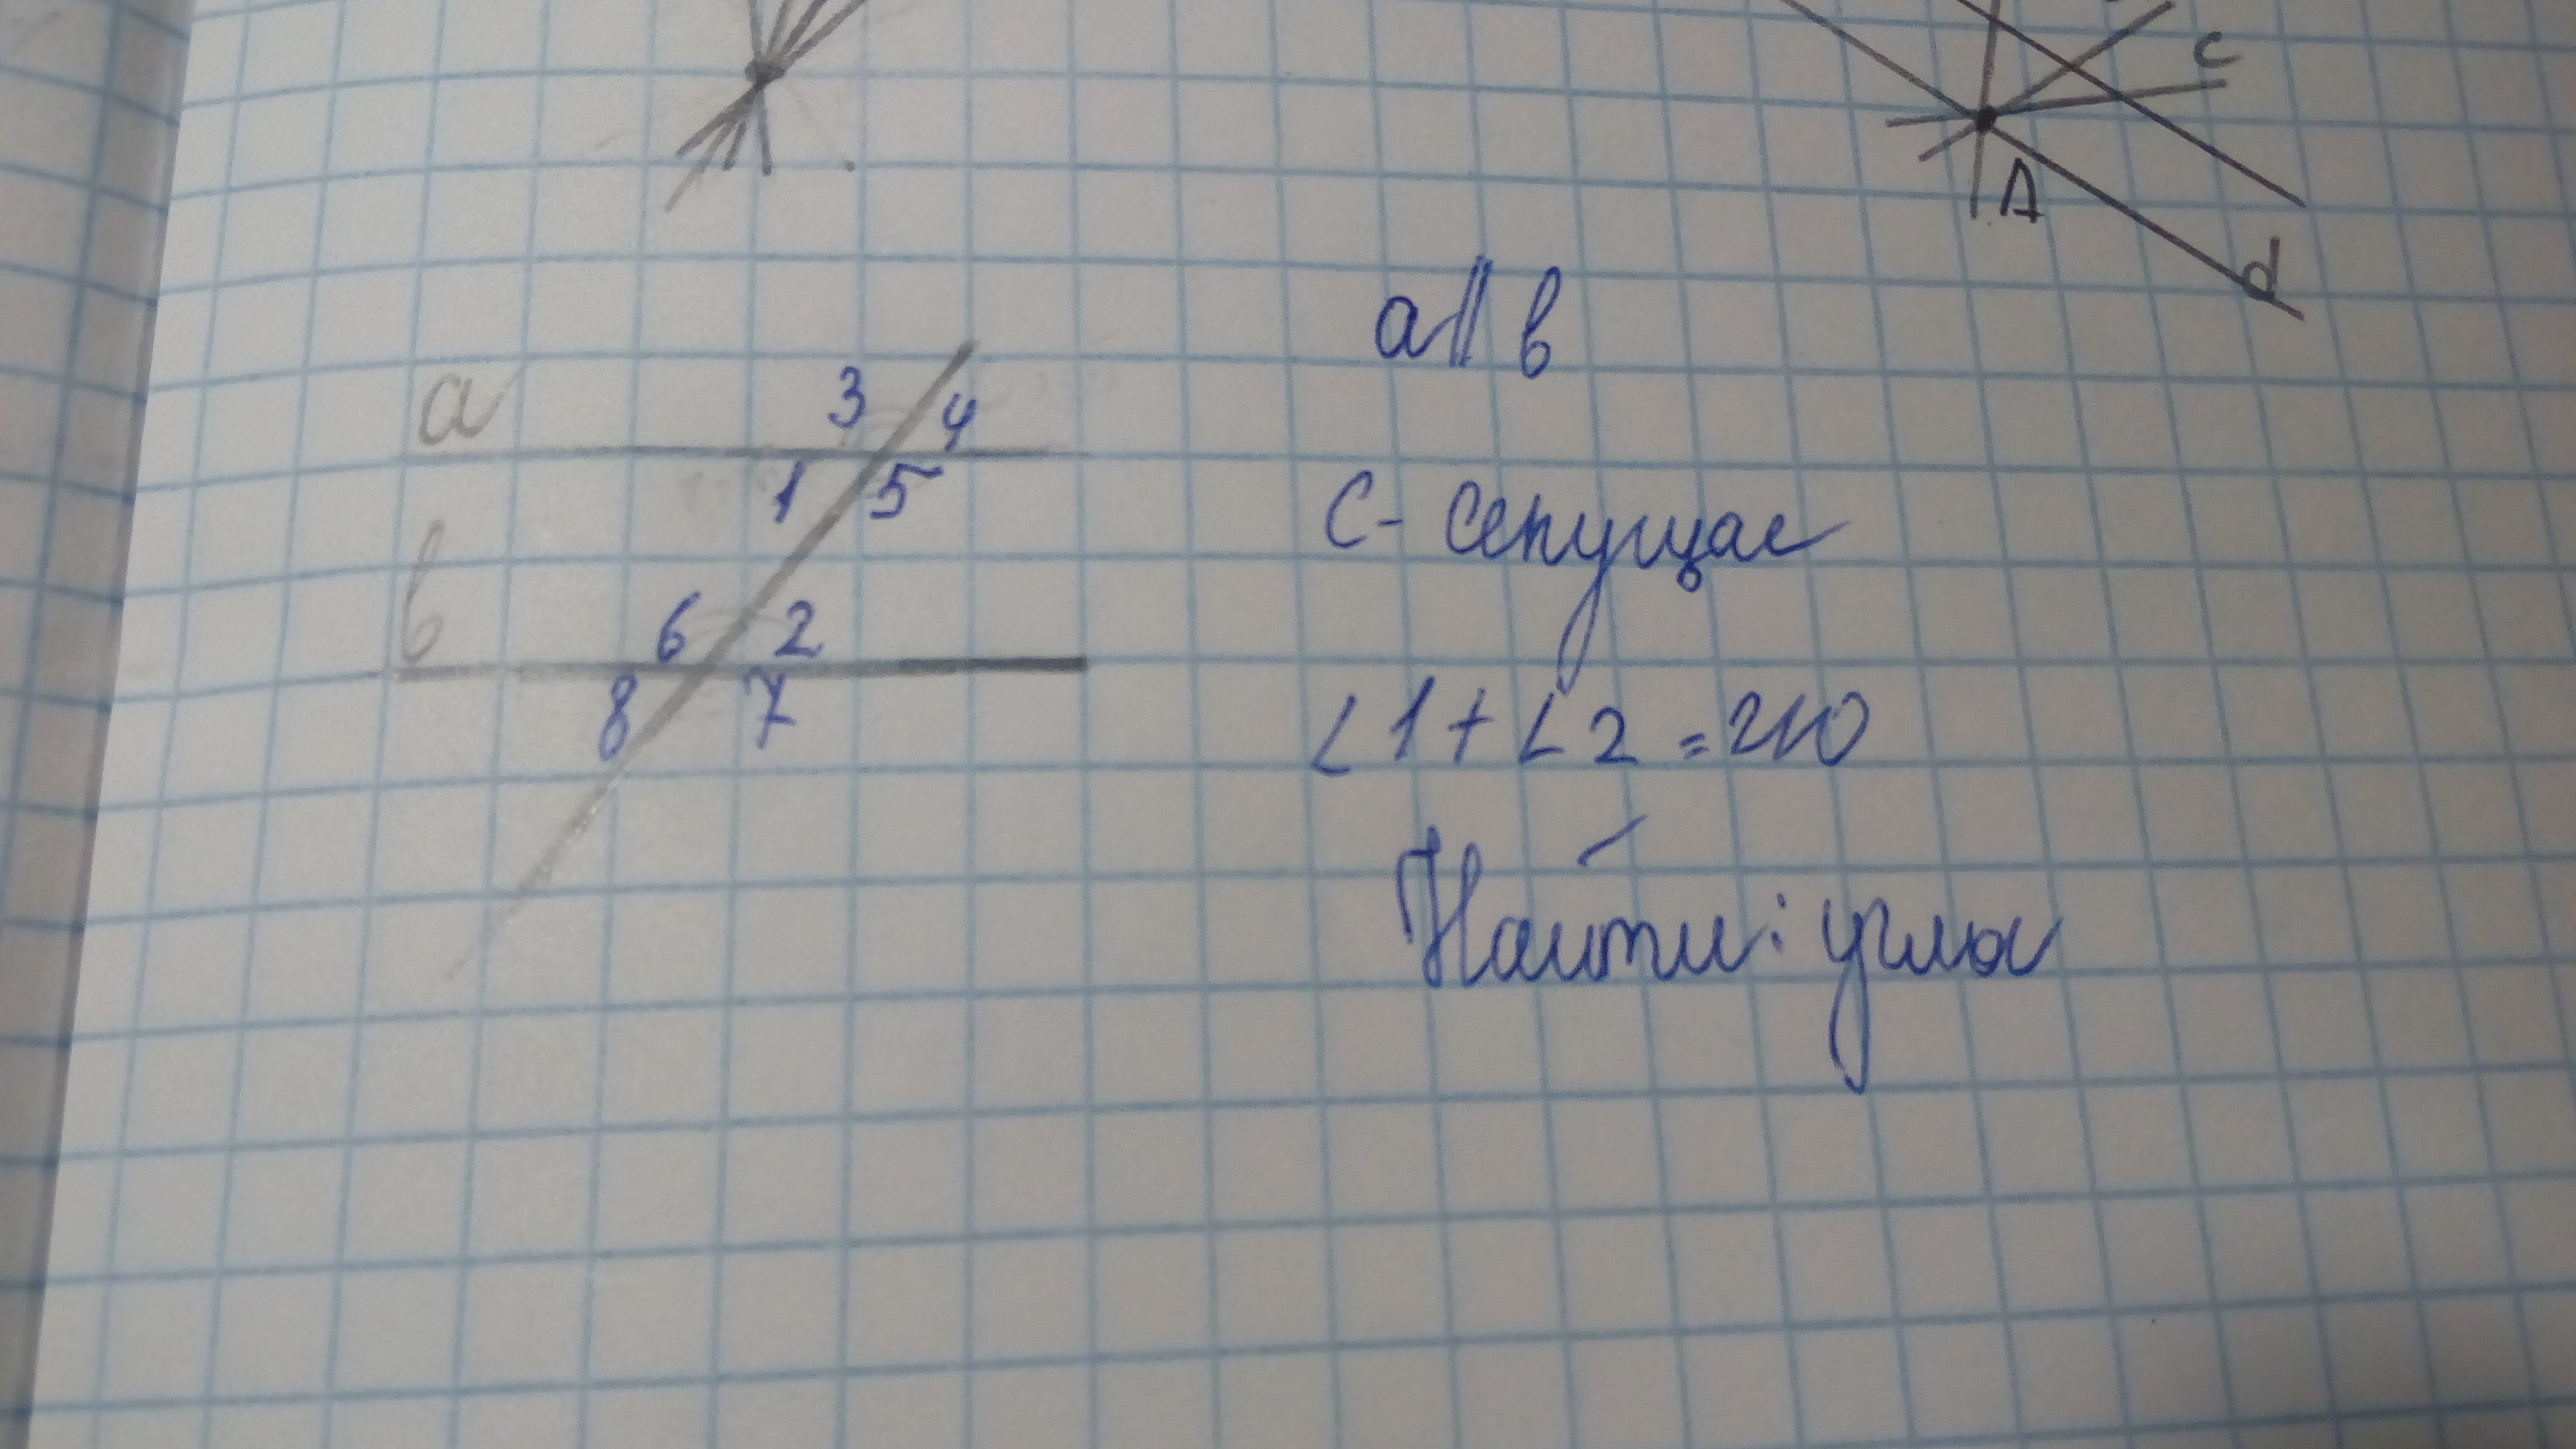 c
A
d
a || в
С - секущая
∠1 + ∠2 = 210
Найти: угла
a
3
4
1
5
b
6
2
8
7